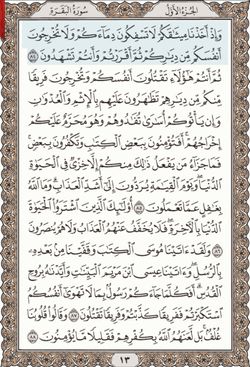 الجزء الأول سورة البقرة
وَإِذْ أَخَذْنَا مِيثَٰقَكُمْ لَا تَسْفِكُونَ دِمَآءَكُمْ وَلَا تُخْرِجُونَ
أَنفُسَكُم مِّن دِيَٰرِكُمْ ثُمَّ أَقْرَرْتُمْ وَأَنتُمْ تَشْهَدُونَ ٨٤
ثُمَّ أَنتُمْ هَٰٓؤُلَآءِ تَقْتُلُونَ أَنفُسَكُمْ وَتُخْرِجُونَ فَرِيقًا
مِّنكُم مِّن دِيَٰرِهِمْ تَظَٰهَرُونَ عَلَيْهِم بِٱلْإِثْمِ وَٱلْعُدْوَٰنِ
وَإِن يَأْتُوكُمْ أُسَٰرَىٰ تُفَٰدُوهُمْ وَهُوَ مُحَرَّمٌ عَلَيْكُمْ
إِخْرَاجُهُمْ ۚ أَفَتُؤْمِنُونَ بِبَعْضِ ٱلْكِتَٰبِ وَتَكْفُرُونَ بِبَعْضٍ ۚ
فَمَا جَزَآءُ مَن يَفْعَلُ ذَٰلِكَ مِنكُمْ إِلَّا خِزْىٌ فِى ٱلْحَيَوٰةِ
ٱلدُّنْيَا ۖ وَيَوْمَ ٱلْقِيَٰمَةِ يُرَدُّونَ إِلَىٰٓ أَشَدِّ ٱلْعَذَابِ ۗ وَمَا ٱللَّهُ
بِغَٰفِلٍ عَمَّا تَعْمَلُونَ ٨٥ أُو۟لَٰٓئِكَ ٱلَّذِينَ ٱشْتَرَوُا۟ ٱلْحَيَوٰةَ
ٱلدُّنْيَا بِٱلْءَاخِرَةِ ۖ فَلَا يُخَفَّفُ عَنْهُمُ ٱلْعَذَابُ وَلَا هُمْ يُنصَرُونَ
٨٦ وَلَقَدْ ءَاتَيْنَا مُوسَى ٱلْكِتَٰبَ وَقَفَّيْنَا مِنۢ بَعْدِهِۦ
بِٱلرُّسُلِ ۖ وَءَاتَيْنَا عِيسَى ٱبْنَ مَرْيَمَ ٱلْبَيِّنَٰتِ وَأَيَّدْنَٰهُ بِرُوحِ
ٱلْقُدُسِ ۗ أَفَكُلَّمَا جَآءَكُمْ رَسُولٌۢ بِمَا لَا تَهْوَىٰٓ أَنفُسُكُمُ
ٱسْتَكْبَرْتُمْ فَفَرِيقًا كَذَّبْتُمْ وَفَرِيقًا تَقْتُلُونَ ٨٧ وَقَالُوا۟ قُلُوبُنَا
غُلْفٌۢ ۚ بَل لَّعَنَهُمُ ٱللَّهُ بِكُفْرِهِمْ فَقَلِيلًا مَّا يُؤْمِنُونَ ٨٨
١٣